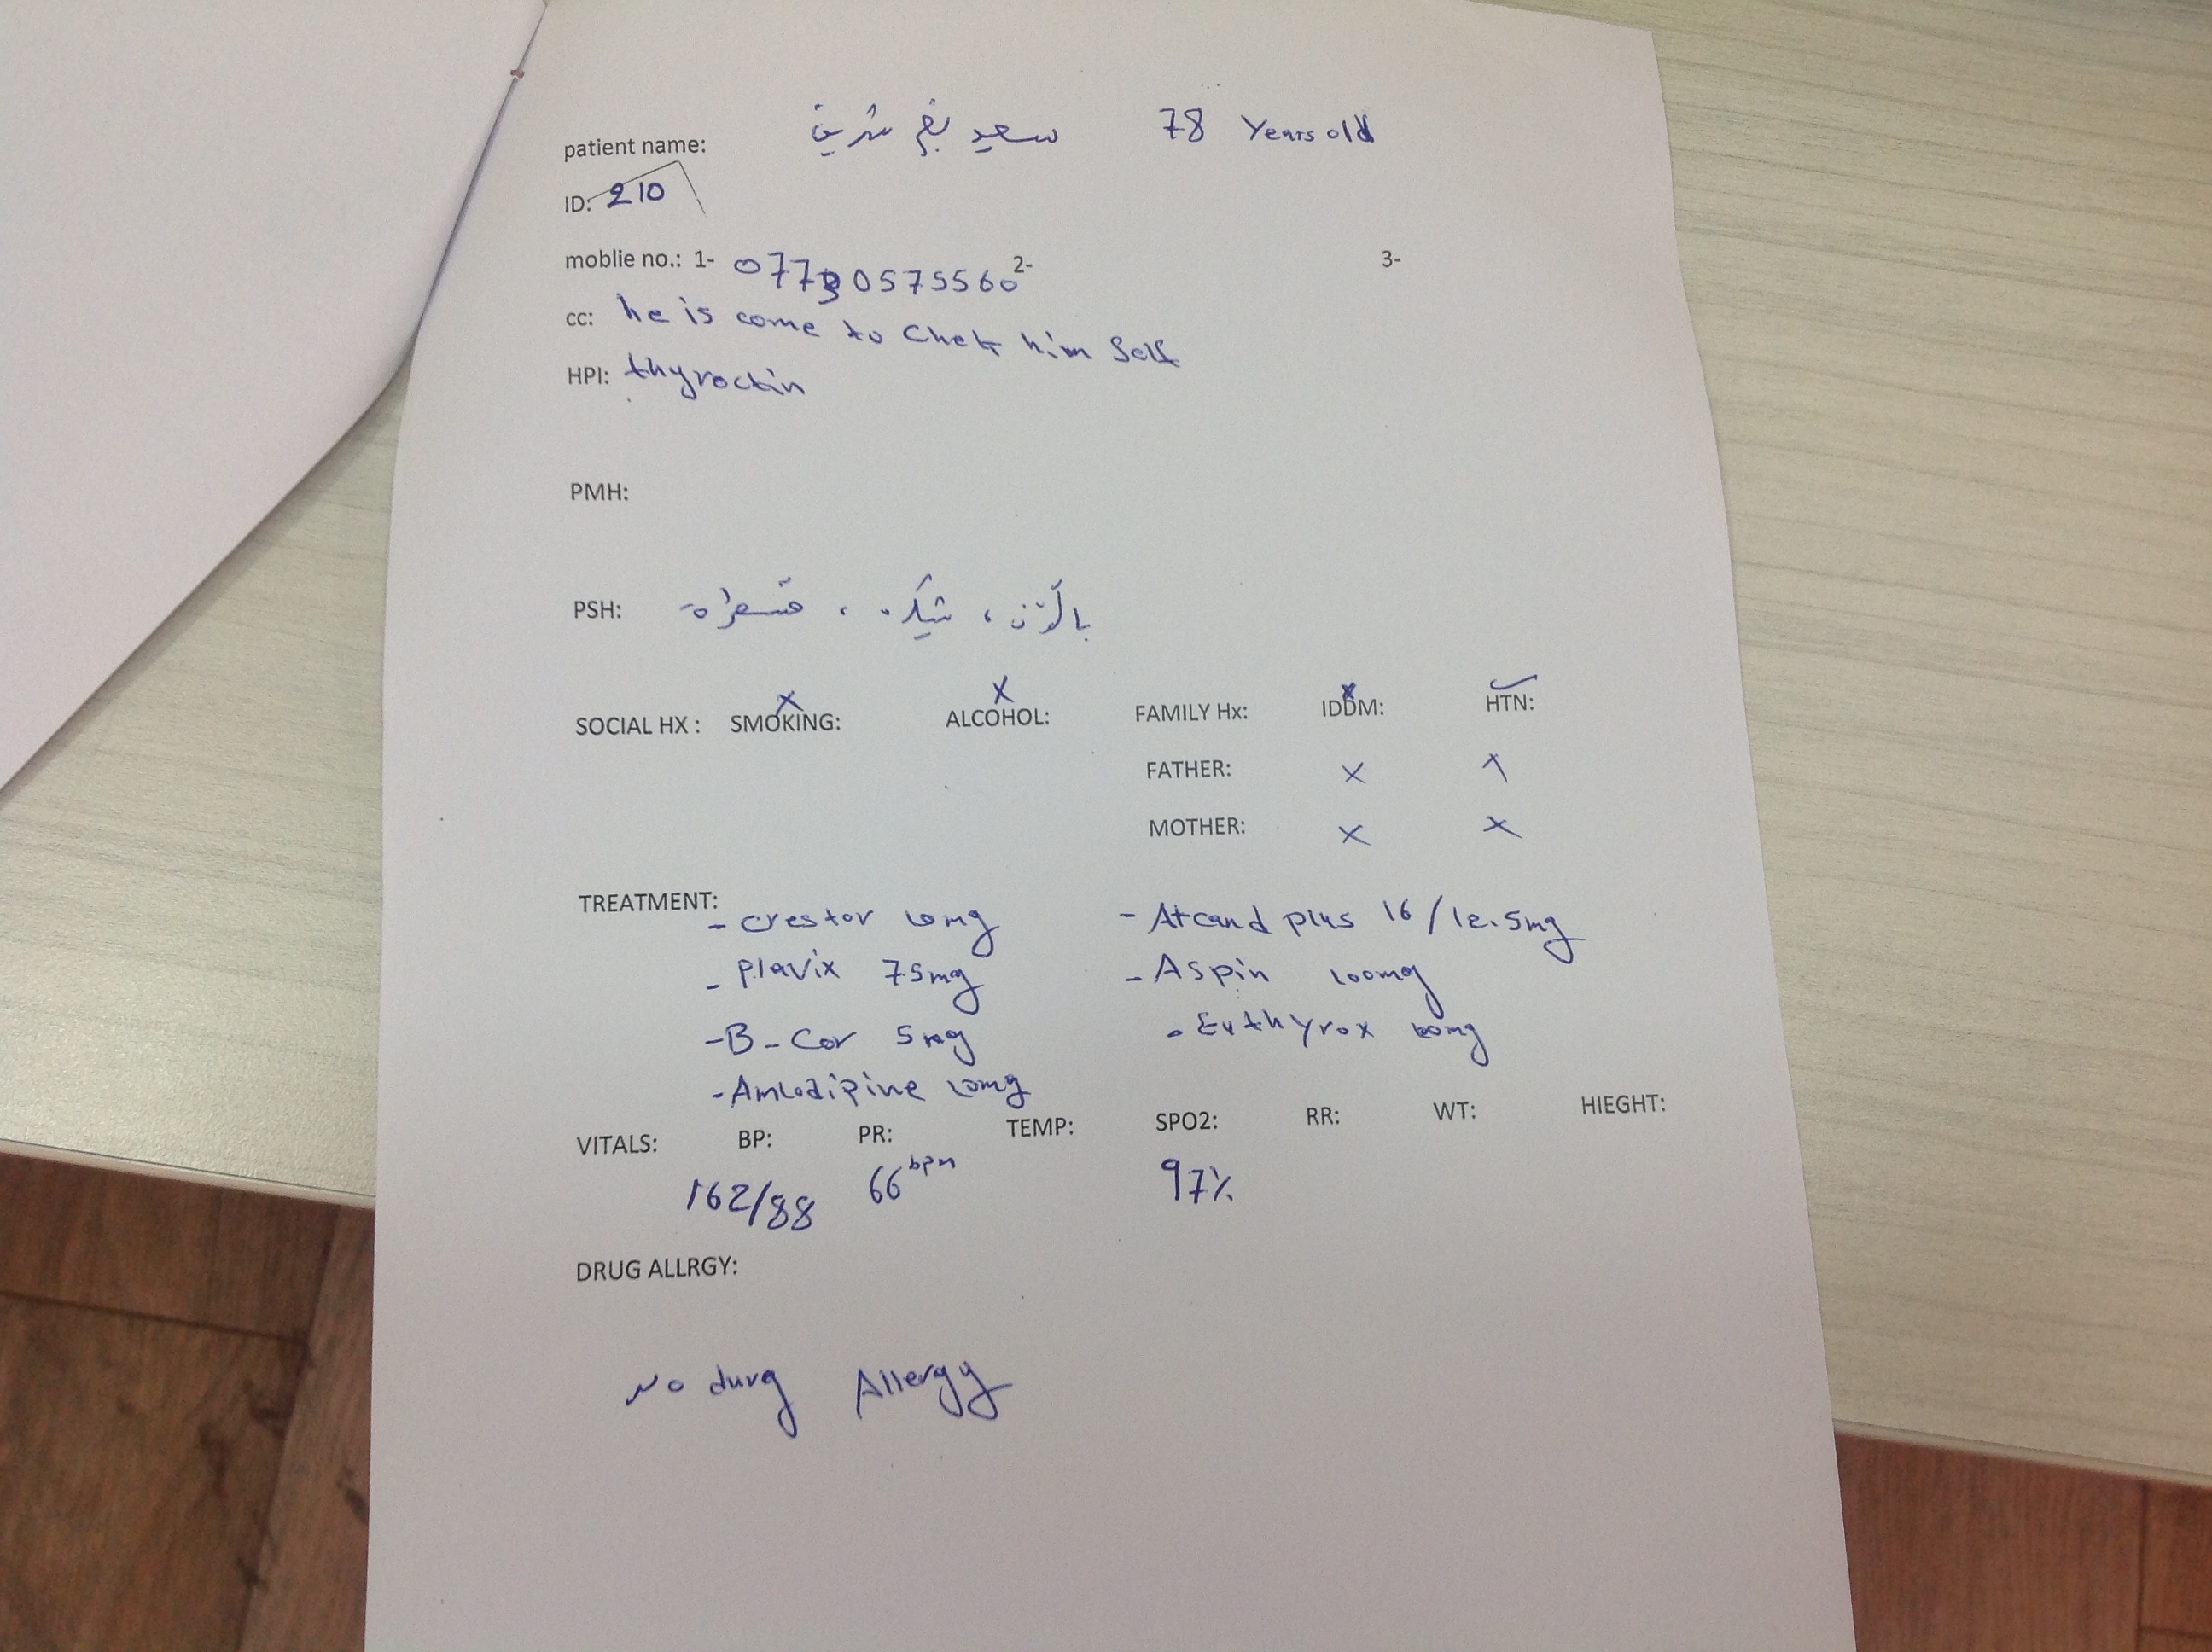 patient name: سعيد نجم شريف 78 Years old
ID: 210
moblie no.: 1- 07730575560 2- 3-
cc: he is come to Chek him Self
HPI: thyroctin
PMH:
PSH: بالۆن ، شبكە ، قسطرة
SOCIAL HX : SMOKING: X ALCOHOL: X FAMILY Hx: IDDM: x HTN: ✓
FATHER: x x
MOTHER: x x
TREATMENT:
- crestor 10mg - Atcand plus 16/12.5mg
- Plavix 75mg - Aspin 100mg
- B-Cor 5mg - Euthyrox mg
- Amlodipine 10mg
VITALS: BP: PR: TEMP: SPO2: RR: WT: HIEGHT:
162/88 66 bpm 97%
DRUG ALLRGY:
No durg Allergy